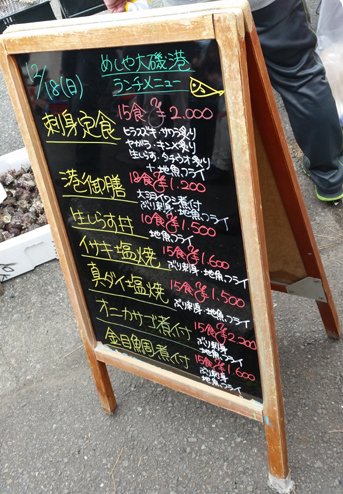 12/18(日)
めしや大磯港
ランチメニュー
刺身定食 15食 ¥2.000
ヒラスズキ・サワラ炙り
ヤガラ・キンメ炙り
生しらす・タチウオ炙り
+地魚フライ
港御膳 18食 ¥1.200
煮付
ぶり刺身・地魚フライ
生しらす丼 10食 ¥1.500
地魚フライ
イサキ塩焼 15食 ¥1.600
ぶり刺身・地魚フライ
真ダイ塩焼 15食 ¥1.500
ぶり刺身・地魚フライ
オニカサゴ煮付 15食 ¥2.200
ぶり刺身
地魚フライ
金目鯛煮付 15食 ¥1.600
ぶり刺身
地魚フライ